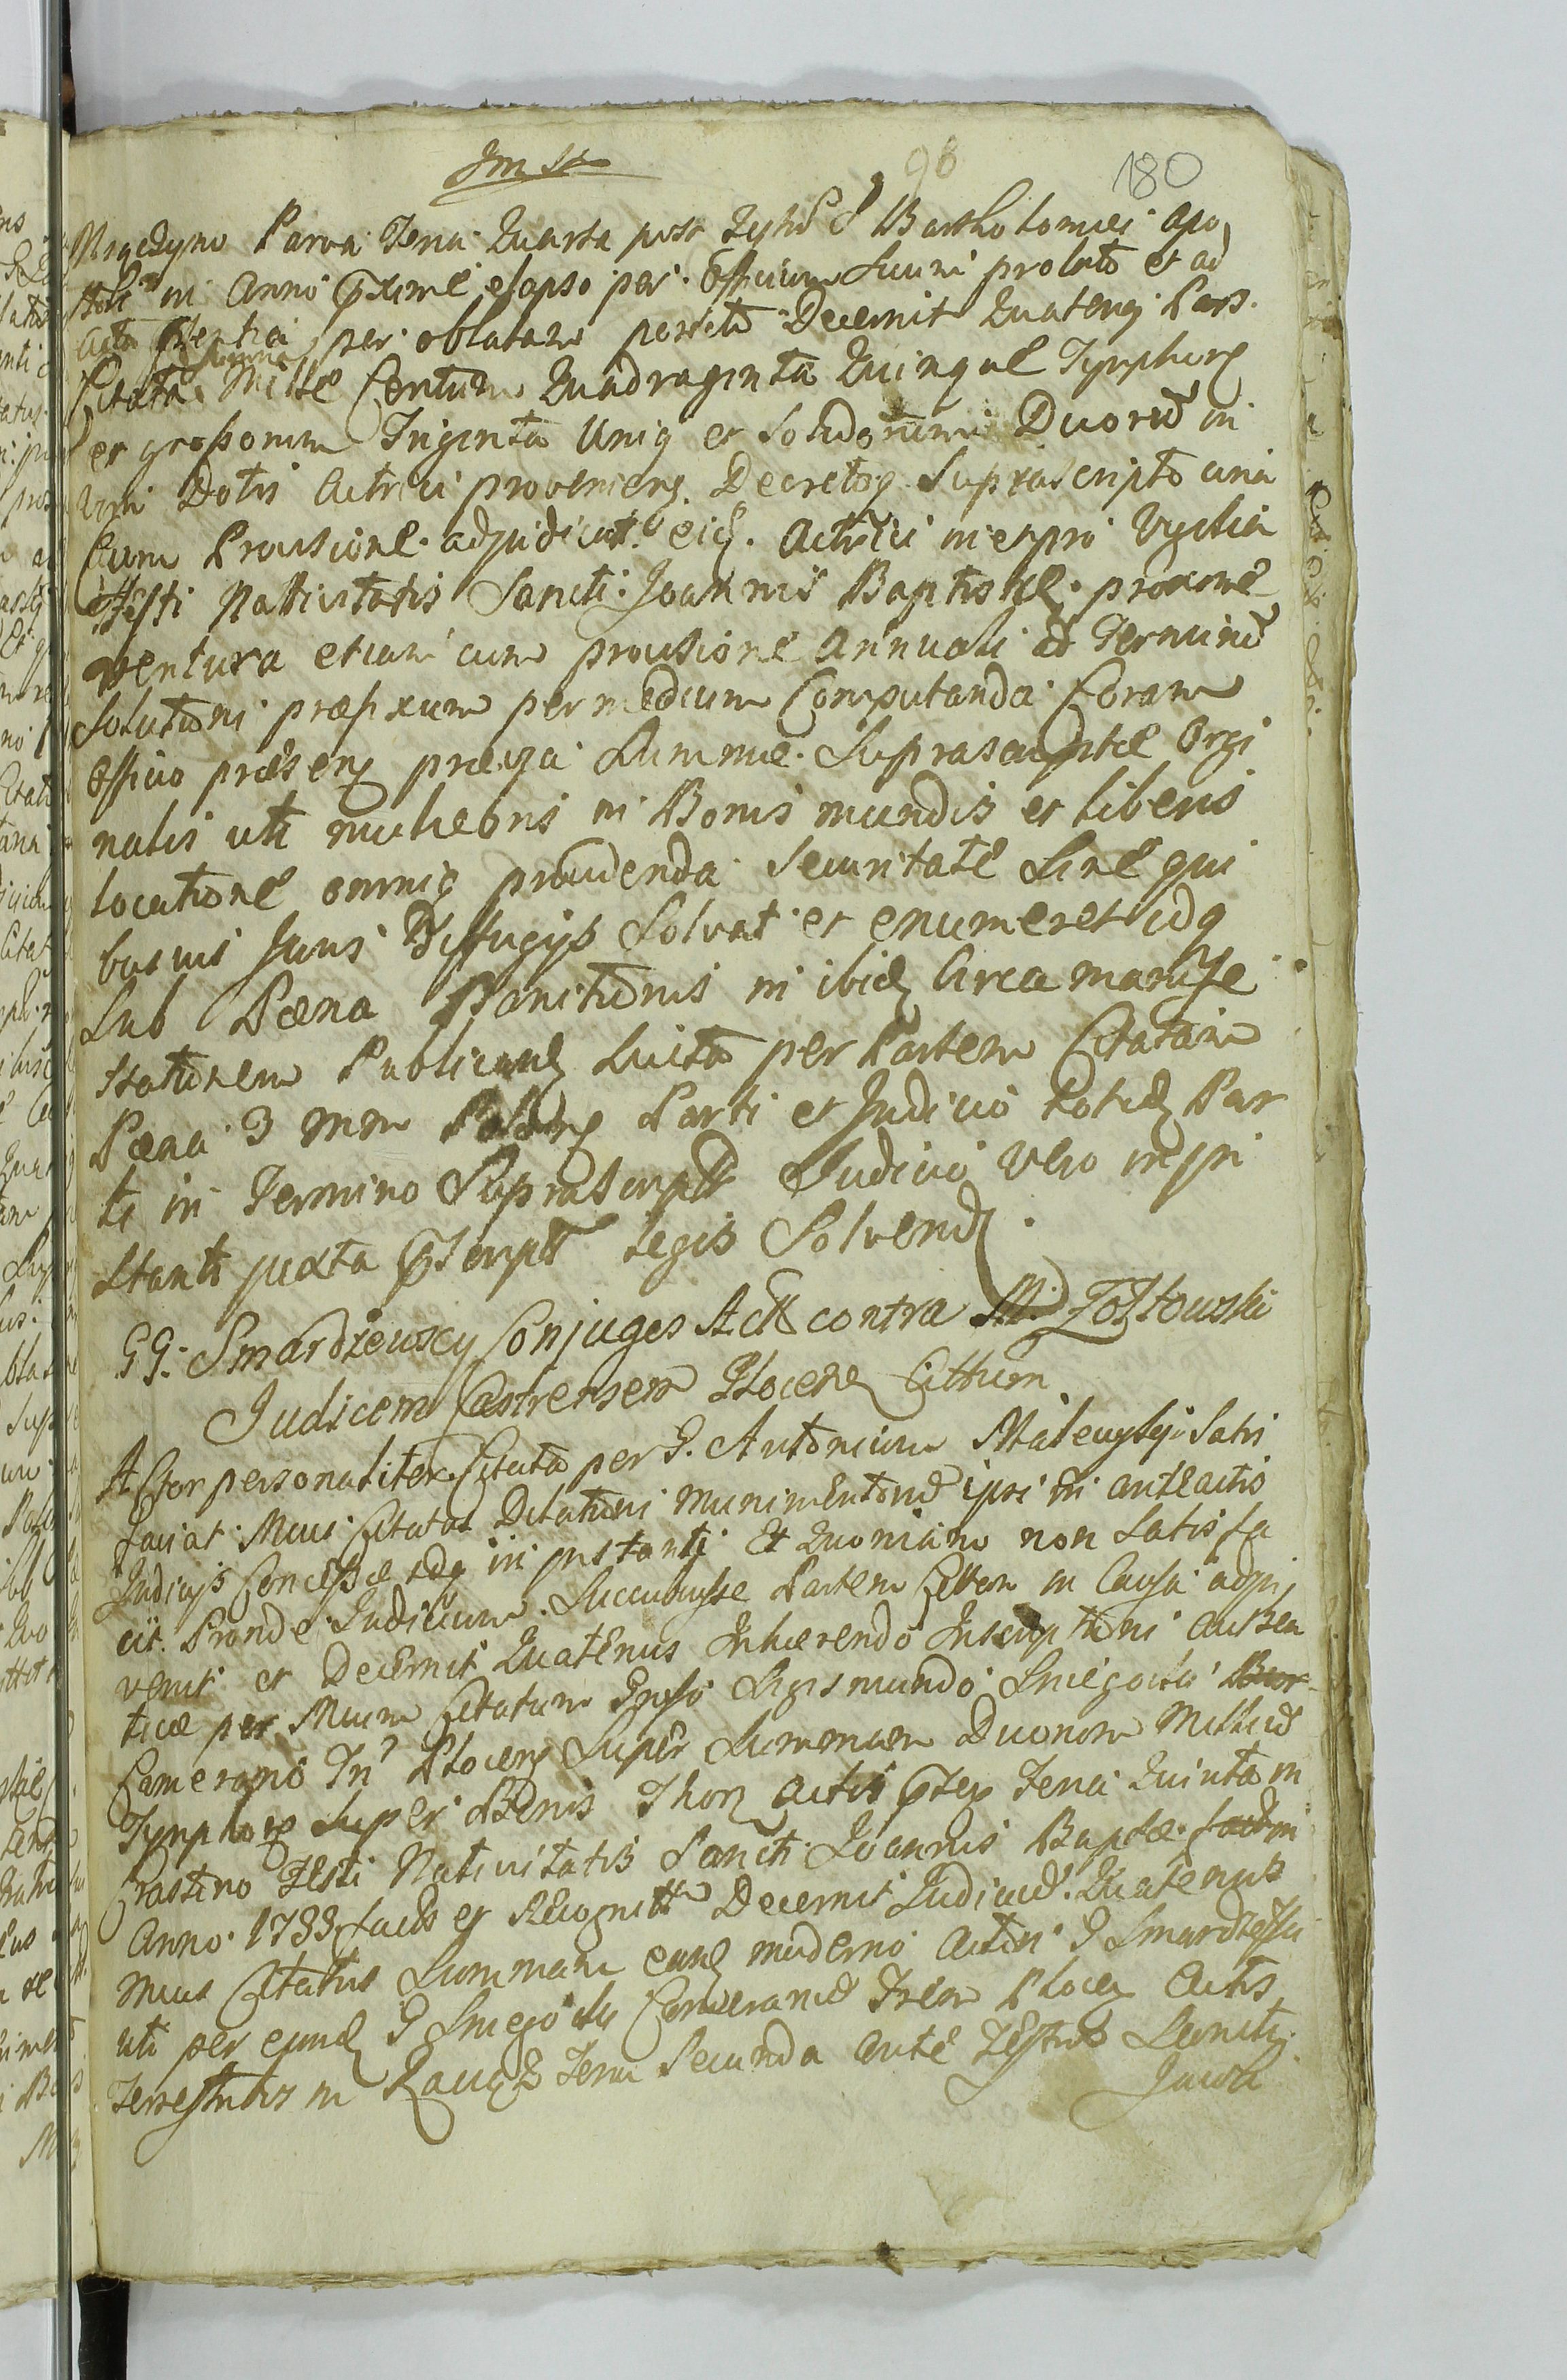 98 180
Parva Feria Quarta post Festū S Bartholomæi Apo
stoli in Anno proxime elapso per Officium Suum prolato et ad
Acta per oblatam Decernit Quateng Pars
Citata Summā Mille Centum Quadraginta Quinque Tympharȝ
et grossorum Triginta Uniq et Solidorum Duorū in
vim Dotis Actrici provenieng Decretoq Suprascripto una
Cum Provisione adjudicat eid. Actrici in et pro Vigilia
Festi Nativitatis Sancti Joannis Baptistæ proxime
ventura etiam cum provisione Annuali ad Terminū
Solutioni præfixum per medium Computanda Coram
Officio præsenȝ prævia Summæ Suprascriptæ Orgi
nalis uti muliebris in Bonis mundis et liberis
locatione omniq providenda Securitate Sine qui
busvis Juris Diffugijs Solvat et enumeret idq
Sub Pæna Banitionis in ibid Circa manife
stationem Publicanȝ Luita per Partem Citatam
Pæna 3 Mm Parti et Judicio totidȝ Par
ti in Termino Suprascripto Judicio Vero in jn
stanti juxta legis Solvendȝ.
GG. Smardzewscy Conjuges Act contra M. Zołtowski
Judicem Castrensem Plocenȝ Cittum
Actor personaliter Citatus per G. Antonium Satis
faciat Mcus Citatus Dilationi munimentorū ipsi in anteactis
Judicijs Concessæ idq in jnstanti Et Quoniam non Satisfa
cit. Proinde Judicium Succubuisse Partem Cittam in Causa adjn
venit et Decernit Quatenus Inhærendo Inscriptioni
ticæ per Mcum Citatum Gnoso Sigismundo Sniegocki
Camerario Plocenȝ Super Summam Duorum Milliū
Tymphorȝ Super Bonis Actis Feria Quinta in
Crastino Festi Nativitatis Sancti Joannis Baptæ
Anno 1733 et Recognitt Decernit Judiciū Quatenus
Mcus Citatus Summam eanȝ moderno Actori G
uti per eundȝ G Sniegocki Camerariū Plocenȝ Actis
Terrestribus in Feria Secunda ante Festum Sancti